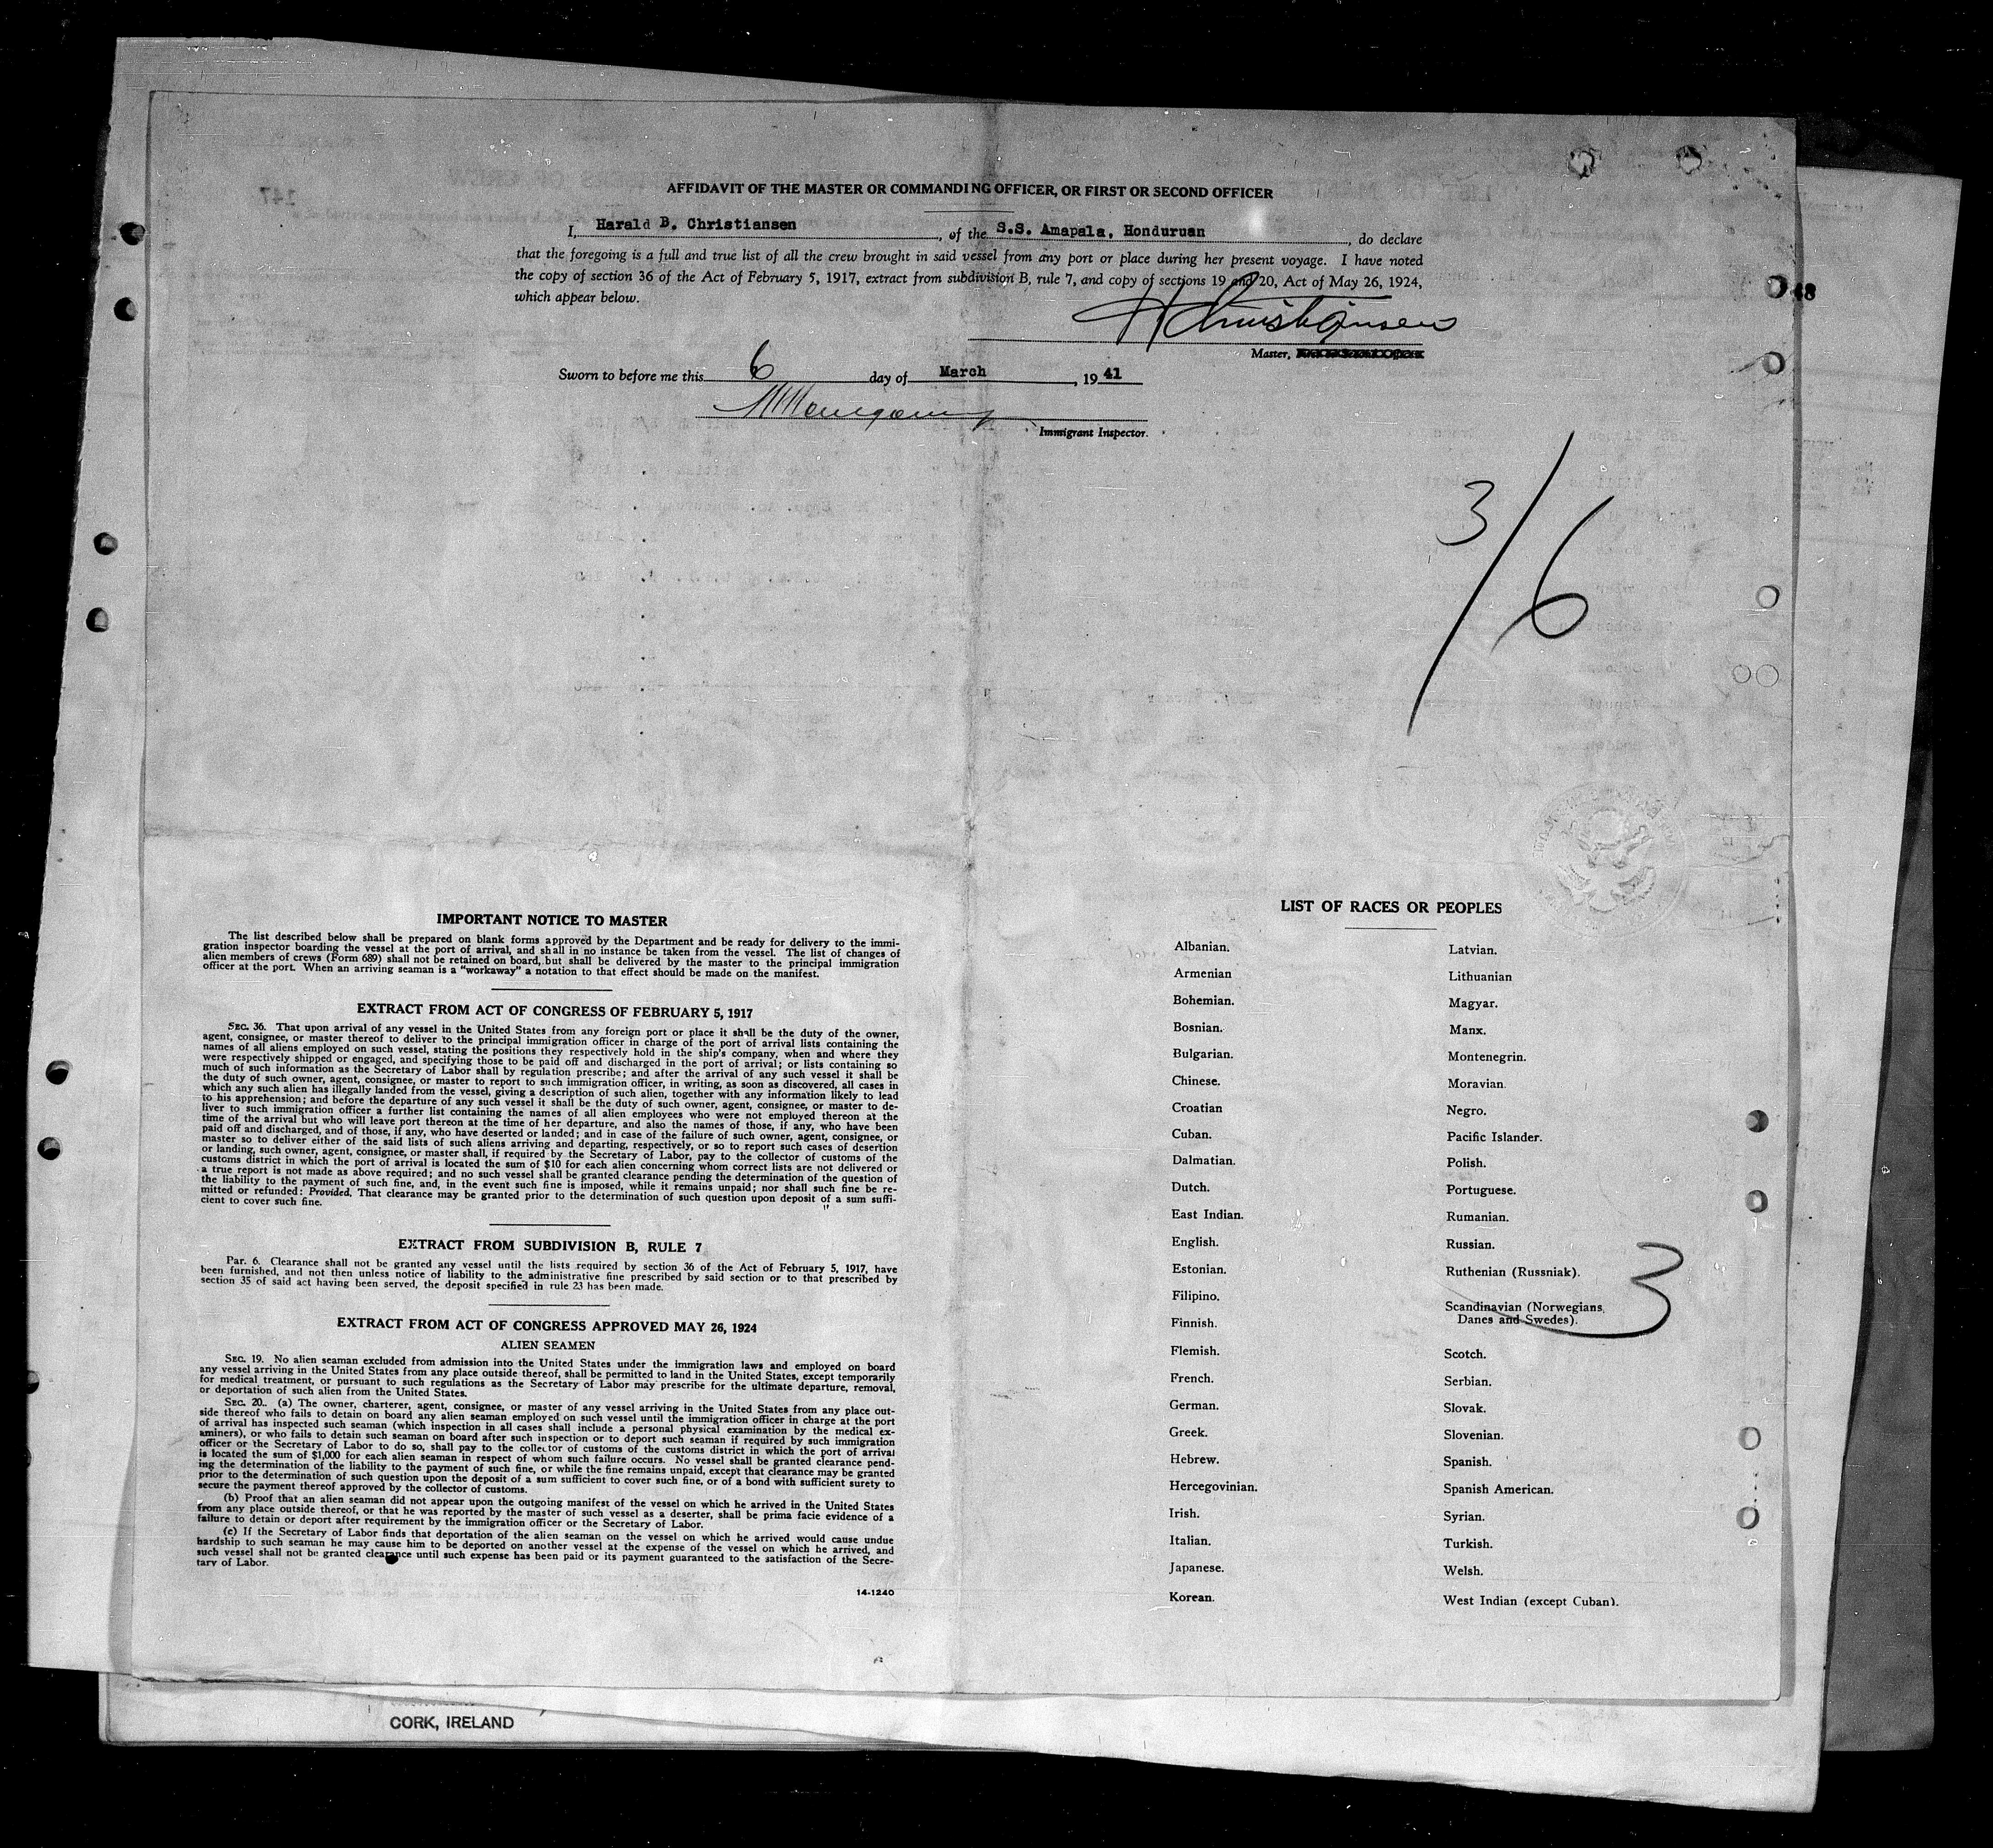 AFFIDAVIT OF THE MASTER OR COMMANDING OFFICER, OR FIRST OR SECOND OFFICER
I, Harald B. Christiansen, of the S.S. Amapala, Honduruan, do declare
that the foregoing is a full and true list of all the crew brought in said vessel from any port or place during her present voyage. I have noted
the copy of section 36 of the Act of February 5, 1917, extract from subdivision B, rule 7, and copy of sections 19 and 20, Act of May 26, 1924,
which appear below.
H Christiansen
Master,
Sworn to before me this 6 day of March, 1941
Immigrant Inspector.
48
3/6
IMPORTANT NOTICE TO MASTER
The list described below shall be prepared on blank forms approved by the Department and be ready for delivery to the immi-
gration inspector boarding the vessel at the port of arrival, and shall in no instance be taken from the vessel. The list of changes of
alien members of crews (Form 689) shall not be retained on board, but shall be delivered by the master to the principal immigration
officer at the port. When an arriving seaman is a "workaway" a notation to that effect should be made on the manifest.
EXTRACT FROM ACT OF CONGRESS OF FEBRUARY 5, 1917
SEC. 36. That upon arrival of any vessel in the United States from any foreign port or place it shall be the duty of the owner,
agent, consignee, or master thereof to deliver to the principal immigration officer in charge of the port of arrival lists containing the
names of all aliens employed on such vessel, stating the positions they respectively hold in the ship's company, when and where they
were respectively shipped or engaged, and specifying those to be paid off and discharged in the port of arrival; or lists containing so
much of such information as the Secretary of Labor shall by regulation prescribe; and after the arrival of any such vessel it shall be
the duty of such owner, agent, consignee, or master to report to such immigration officer, in writing, as soon as discovered, all cases in
which any such alien has illegally landed from the vessel, giving a description of such alien, together with any information likely to lead
to his apprehension; and before the departure of any such vessel it shall be the duty of such owner, agent, consignee, or master to de-
liver to such immigration officer a further list containing the names of all alien employees who were not employed thereon at the
time of the arrival but who will leave port thereon at the time of her departure, and also the names of those, if any, who have been
paid off and discharged, and of those, if any, who have deserted or landed; and in case of the failure of such owner, agent, consignee, or
master so to deliver either of the said lists of such aliens arriving and departing, respectively, or so to report such cases of desertion
or landing, such owner, agent, consignee, or master shall, if required by the Secretary of Labor, pay to the collector of customs of the
customs district in which the port of arrival is located the sum of $10 for each alien concerning whom correct lists are not delivered or
a true report is not made as above required; and no such vessel shall be granted clearance pending the determination of the question of
the liability to the payment of such fine, and, in the event such fine is imposed, while it remains unpaid; nor shall such fine be re-
mitted or refunded: Provided, That clearance may be granted prior to the determination of such question upon deposit of a sum suffi-
cient to cover such fine.
EXTRACT FROM SUBDIVISION B, RULE 7
Par. 6. Clearance shall not be granted any vessel until the lists required by section 36 of the Act of February 5, 1917, have
been furnished, and not then unless notice of liability to the administrative fine prescribed by said section or to that prescribed by
section 35 of said act having been served, the deposit specified in rule 23 has been made.
EXTRACT FROM ACT OF CONGRESS APPROVED MAY 26, 1924
ALIEN SEAMEN
SEC. 19. No alien seaman excluded from admission into the United States under the immigration laws and employed on board
any vessel arriving in the United States from any place outside thereof, shall be permitted to land in the United States, except temporarily
for medical treatment, or pursuant to such regulations as the Secretary of Labor may prescribe for the ultimate departure, removal,
or deportation of such alien from the United States.
SEC. 20. (a) The owner, charterer, agent, consignee, or master of any vessel arriving in the United States from any place out-
side thereof who fails to detain on board any alien seaman employed on such vessel until the immigration officer in charge at the port
of arrival has inspected such seaman (which inspection in all cases shall include a personal physical examination by the medical ex-
aminers), or who fails to detain such seaman on board after such inspection or to deport such seaman if required by such immigration
officer or the Secretary of Labor to do so, shall pay to the collector of customs of the customs district in which the port of arrival
is located the sum of $1,000 for each alien seaman in respect of whom such failure occurs. No vessel shall be granted clearance pend-
ing the determination of the liability to the payment of such fine, or while the fine remains unpaid, except that clearance may be granted
prior to the determination of such question upon the deposit of a sum sufficient to cover such fine, or of a bond with sufficient surety to
secure the payment thereof approved by the collector of customs.
(b) Proof that an alien seaman did not appear upon the outgoing manifest of the vessel on which he arrived in the United States
from any place outside thereof, or that he was reported by the master of such vessel as a deserter, shall be prima facie evidence of a
failure to detain or deport after requirement by the immigration officer or the Secretary of Labor.
(c) If the Secretary of Labor finds that deportation of the alien seaman on the vessel on which he arrived would cause undue
hardship to such seaman he may cause him to be deported on another vessel at the expense of the vessel on which he arrived, and
such vessel shall not be granted clearance until such expense has been paid or its payment guaranteed to the satisfaction of the Secre-
tary of Labor.
14-1240
LIST OF RACES OR PEOPLES
Albanian.
Armenian
Bohemian.
Bosnian.
Bulgarian.
Chinese.
Croatian
Cuban.
Dalmatian.
Dutch.
East Indian.
English.
Estonian.
Filipino.
Finnish.
Flemish.
French.
German.
Greek.
Hebrew.
Hercegovinian.
Irish.
Italian.
Japanese.
Korean.
Latvian.
Lithuanian
Magyar.
Manx.
Montenegrin.
Moravian.
Negro.
Pacific Islander.
Polish.
Portuguese.
Rumanian.
Russian.
Ruthenian (Russniak).
Scandinavian (Norwegians,
Danes and Swedes).
3
Scotch.
Serbian.
Slovak.
Slovenian.
Spanish.
Spanish American.
Syrian.
Turkish.
Welsh.
West Indian (except Cuban).
CORK, IRELAND